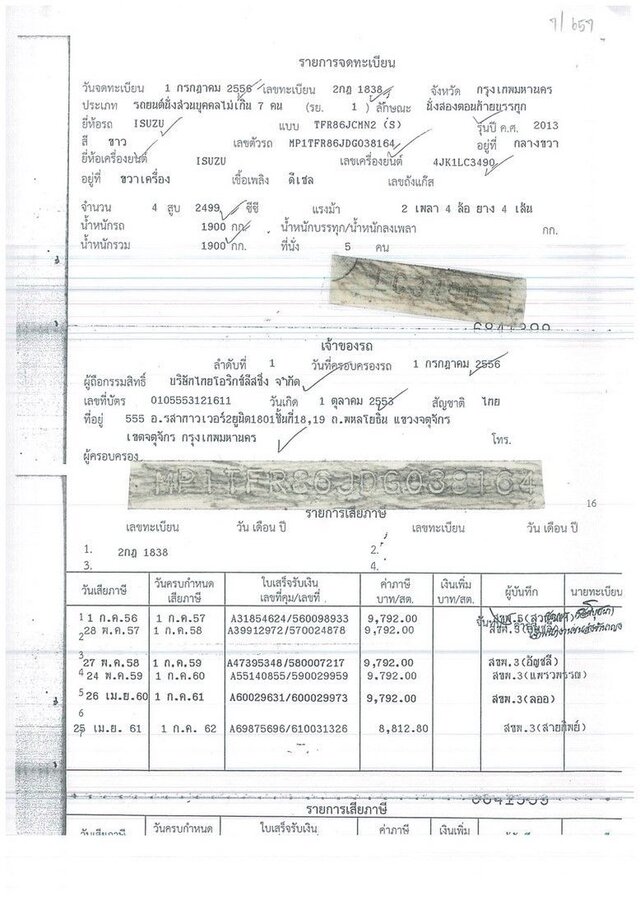 9/657
รายการจดทะเบียน
วันจดทะเบียน 1 กรกฎาคม 2556 เลขทะเบียน 2กฎ 1838 จังหวัด กรุงเทพมหานคร
ประเภท รถยนต์นั่งส่วนบุคคลไม่เกิน 7 คน (รย. 1 ) ลักษณะ นั่งสองตอนท้ายบรรทุก
ยี่ห้อรถ ISUZU แบบ TFR86JCMN2 (S) รุ่นปี ค.ศ. 2013
สี ขาว เลขตัวรถ MP1TFR86JDG038164 อยู่ที่ กลางขวา
ยี่ห้อเครื่องยนต์ ISUZU เลขเครื่องยนต์ 4JK1LC3490
อยู่ที่ ขวาเครื่อง เชื้อเพลิง ดีเซล เลขถังแก๊ส
จำนวน 4 สูบ 2499 ซีซี แรงม้า 2 เพลา 4 ล้อ ยาง 4 เส้น
น้ำหนักรถ 1900 กก. น้ำหนักบรรทุก/น้ำหนักลงเพลา กก.
น้ำหนักรวม 1900 กก. ที่นั่ง 5 คน
เจ้าของรถ
ลำดับที่ 1 วันที่ครอบครองรถ 1 กรกฎาคม 2556
ผู้ถือกรรมสิทธิ์ บริษัทไทยโอริกซ์ลีสซิ่ง จำกัด
เลขที่บัตร 0105553121611 วันเกิด 1 ตุลาคม 2553 สัญชาติ ไทย
ที่อยู่ 555 อ.รสาทาวเวอร์2ยูนิต1801ชั้นที่18,19 ถ.พหลโยธิน แขวงจตุจักร
เขตจตุจักร กรุงเทพมหานคร โทร.
ผู้ครอบครอง
MP1TFR86JDG038164
16
รายการเสียภาษี
เลขทะเบียน วัน เดือน ปี เลขทะเบียน วัน เดือน ปี
1. 2กฎ 1838 2.
3. 4.
วันเสียภาษี วันครบกำหนดเสียภาษี ใบเสร็จรับเงิน เลขที่คุม/เลขที่ ค่าภาษี บาท/สต. เงินเพิ่ม บาท/สต. ผู้บันทึก นายทะเบียน
1 1 ก.ค.56 1 ก.ค.57 A31854624/560098933 9,792.00
2 28 พ.ค.57 1 ก.ค.58 A39912972/570024878 9,792.00
3 27 พ.ค.58 1 ก.ค.59 A47395348/580007217 9,792.00 สขพ.3(อัญชลี)
4 24 พ.ค.59 1 ก.ค.60 A55140855/590029959 9,792.00 สขพ.3(แพรวพรรณ)
5 26 เม.ย.60 1 ก.ค.61 A60029631/600029973 9,792.00 สขพ.3(ลออ)
6 25 เม.ย. 61 1 ก.ค. 62 A69875696/610031326 8,812.80 สขพ.3(สายทิพย์)
รายการเสียภาษี
วันเสียภาษี วันครบกำหนด ใบเสร็จรับเงิน ค่าภาษี เงินเพิ่ม